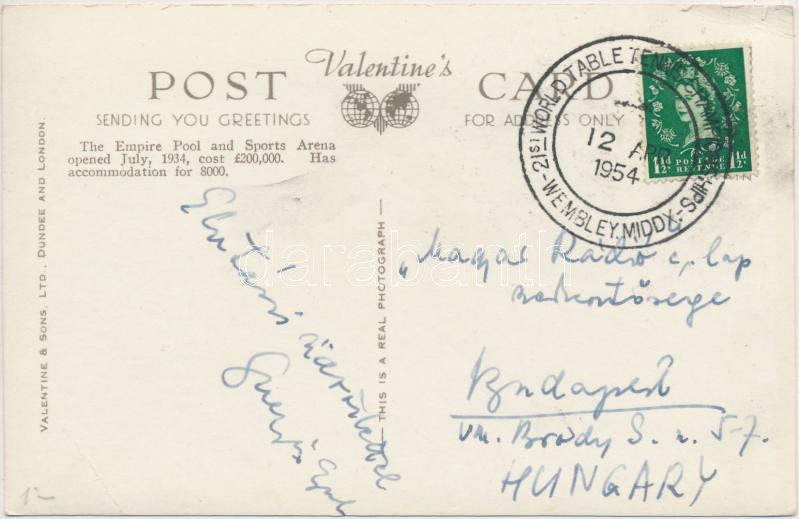 POST Valentine's CARD
SENDING YOU GREETINGS
FOR ADDRESS ONLY
The Empire Pool and Sports Arena
opened July, 1934, cost £200,000. Has
accommodation for 8000.
VALENTINE & SONS, LTD., DUNDEE AND LONDON.
— THIS IS A REAL PHOTOGRAPH —
21ST WORLD TABLE TENNIS CHAMPIONSHIPS - WEMBLEY, MIDDX.-
12 APR
1954
1½d POSTAGE REVENUE 1½d.
„Magyar Rádió c. lap
szerkesztősége
Budapest
VIII. Bródy S. u. 5-7.
HUNGARY
darabanth